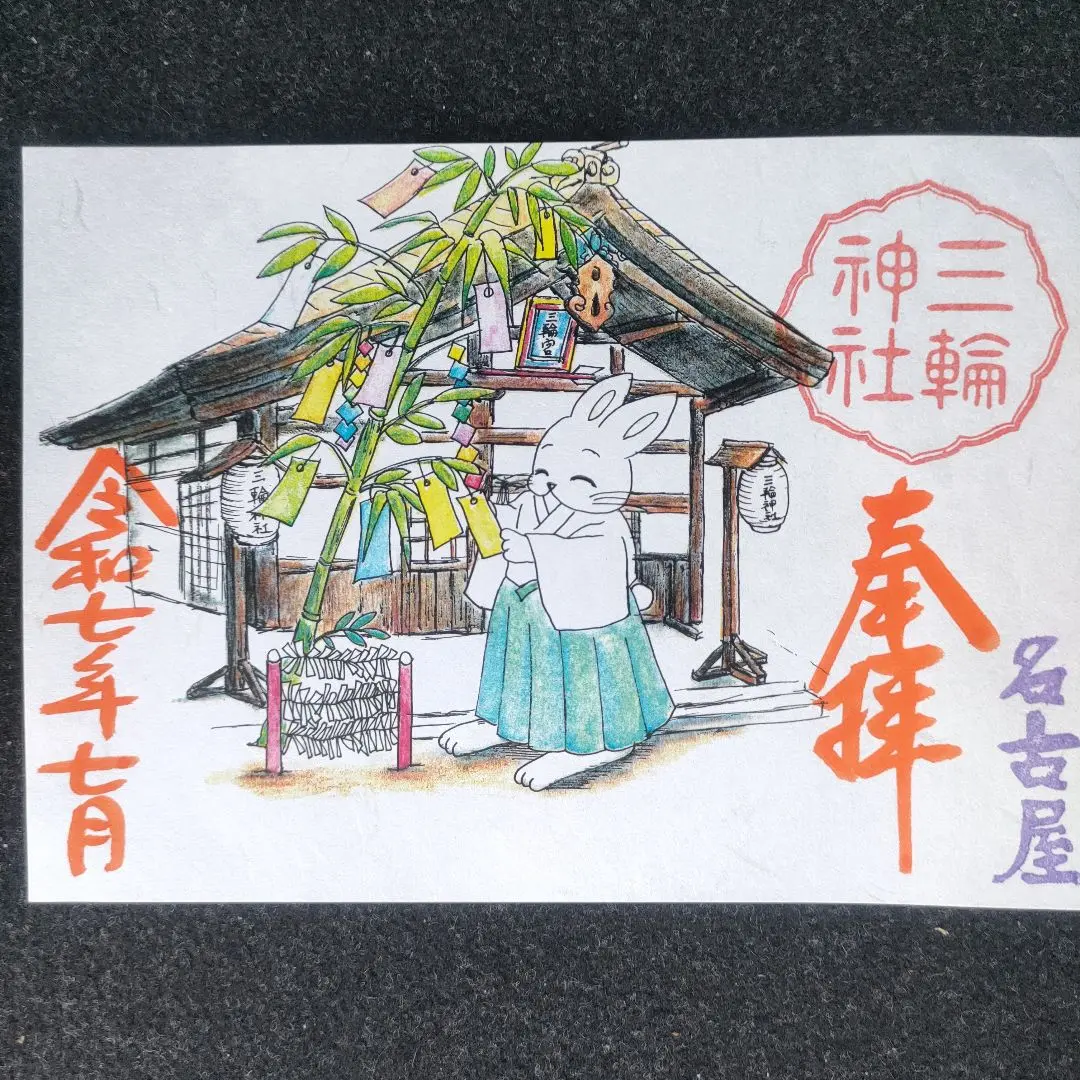 三輪
神社
奉拝
名古屋
三輪宮
三輪神社
三輪神社
令和七年七月